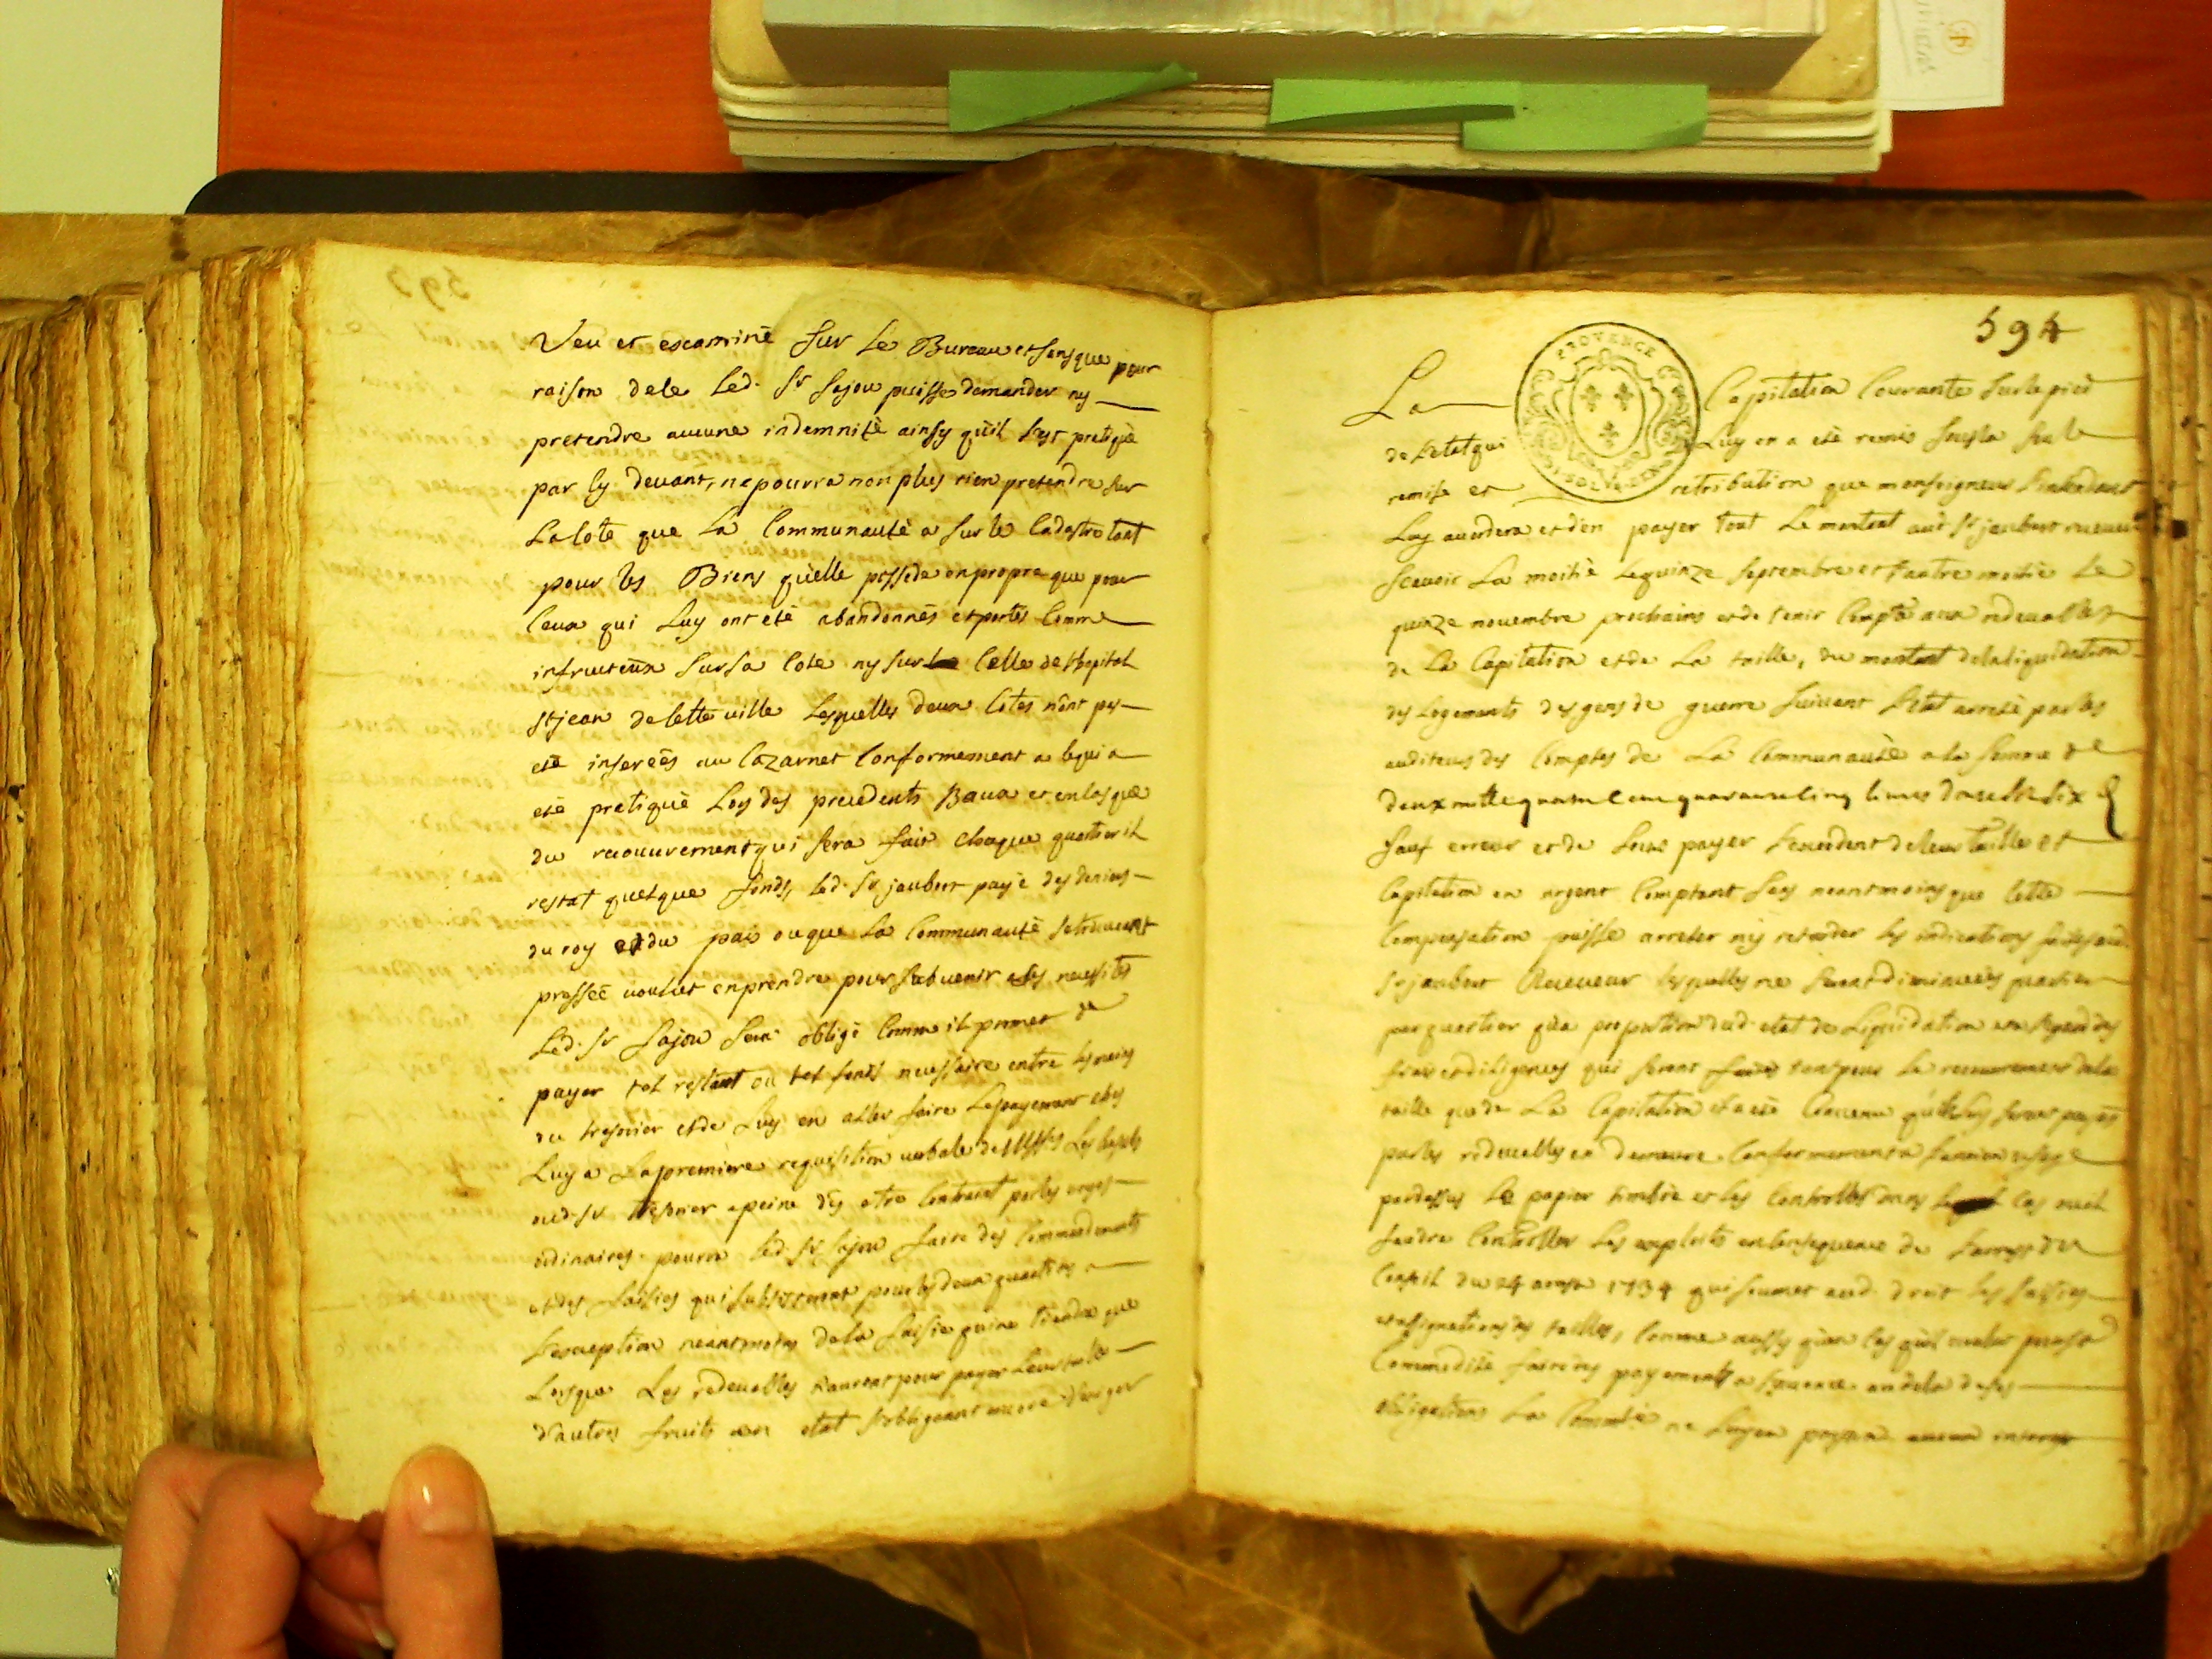 Veu et examiné sur le Bureau et sans que pour
raison dele led. Sr Sajou puisse demander ny
pretendre aucune indemnité ainsy qu'il s'est pretiqué
par cy devant, ne pourra non plus rien pretendre sur
La cote que La Communauté a sur le Cadastre tant
pour les Biens qu'elle possede en propre que pour
Ceux qui Luy ont été abandonnés et portés Comme
infructeux sur sa Cote ny sur Celle de Lhopital
St jean de Cette ville Lesquelles deux Cotes n'ont pas
eté inserées au Cazarnet Conformement a cequi a
eté pretiqué Lors des precedents Baux et en cas que
du recouvrement qui sera fait chaque quartier il
restat quelque fonds, led. Sr jaubert payé des deniers
du roy et du pais ou que La Communauté se trouvant
pressée voulut en prendre pour subvenir a ses necessités
Led. Sr Sajou sera obligé Comme il promet de
payer tel restant ou tel fonds necessaire entre les mains
du tresorier et de Luy en aller faire Le payement chez
Luy a La premiere requisition verbale de
aud. Sr tresorier a peine d'y etre Contraint par les voyes
ordinaires. pourra led. Sr Sajou faire des Commandements
et des saisies qui subsisteront pour les deux quartiers a
L'exception neantmoins de la saisie qui ne tiendra que
Lorsque Les redevables n'auront pour payer Leur taille
d'autres fruits en etat s'obligeant encore d'exiger
594
PROVENCE
La Capitation Courante sur le pied
de Letat qui Luy en a eté remis sous la seule
remise et retribution que monseigneur Lintendant
Luy accordera et d'en payer tout Le montant aud. Sr jaubert receveur
Scavoir La moitié Le quinze septembre et L'autre moitié Le
quinze novembre prochains et de tenir Compte aux redevables
de La Capitation et de La taille, du montant de la liquidation
des Logements des gens de guerre suivant Letat arreté par les
auditeurs des Comptes de La Communauté a la somme de
deux mille quatre Cens quarante Cinq livres
sauf erreur et de Leur payer L'excedent de leur taille et
Capitation en argent Comptant sans neantmoins que Cette
Compensation puisse arreter ny retarder les indications faites aud.
Sr jaubert Receveur lesquelles ne seront diminuées quartier
par quartier qu'a proportion dud. etat de Liquidation
frais et diligences qui seront tant pour Le recouvrement de la
taille que de La Capitation il a eté Convenu qu'ils Luy seront payés
par les redevables en demeure Conformement a L'ancien usage
par dessus Le papier timbré et les Controlles dans Les Cas ou il
faudra Controller Les exploits en Consequence de Larrest du
Conseil du 24 aoust 1734 qui soumet aud. droit Les saisies
et assignations des tailles, Comme aussy qu'en Cas qu'il voulut pour sa
Commodité faire des payements a L'avance au dela de ses
obligations La Commté ne Luy en payera aucun interest